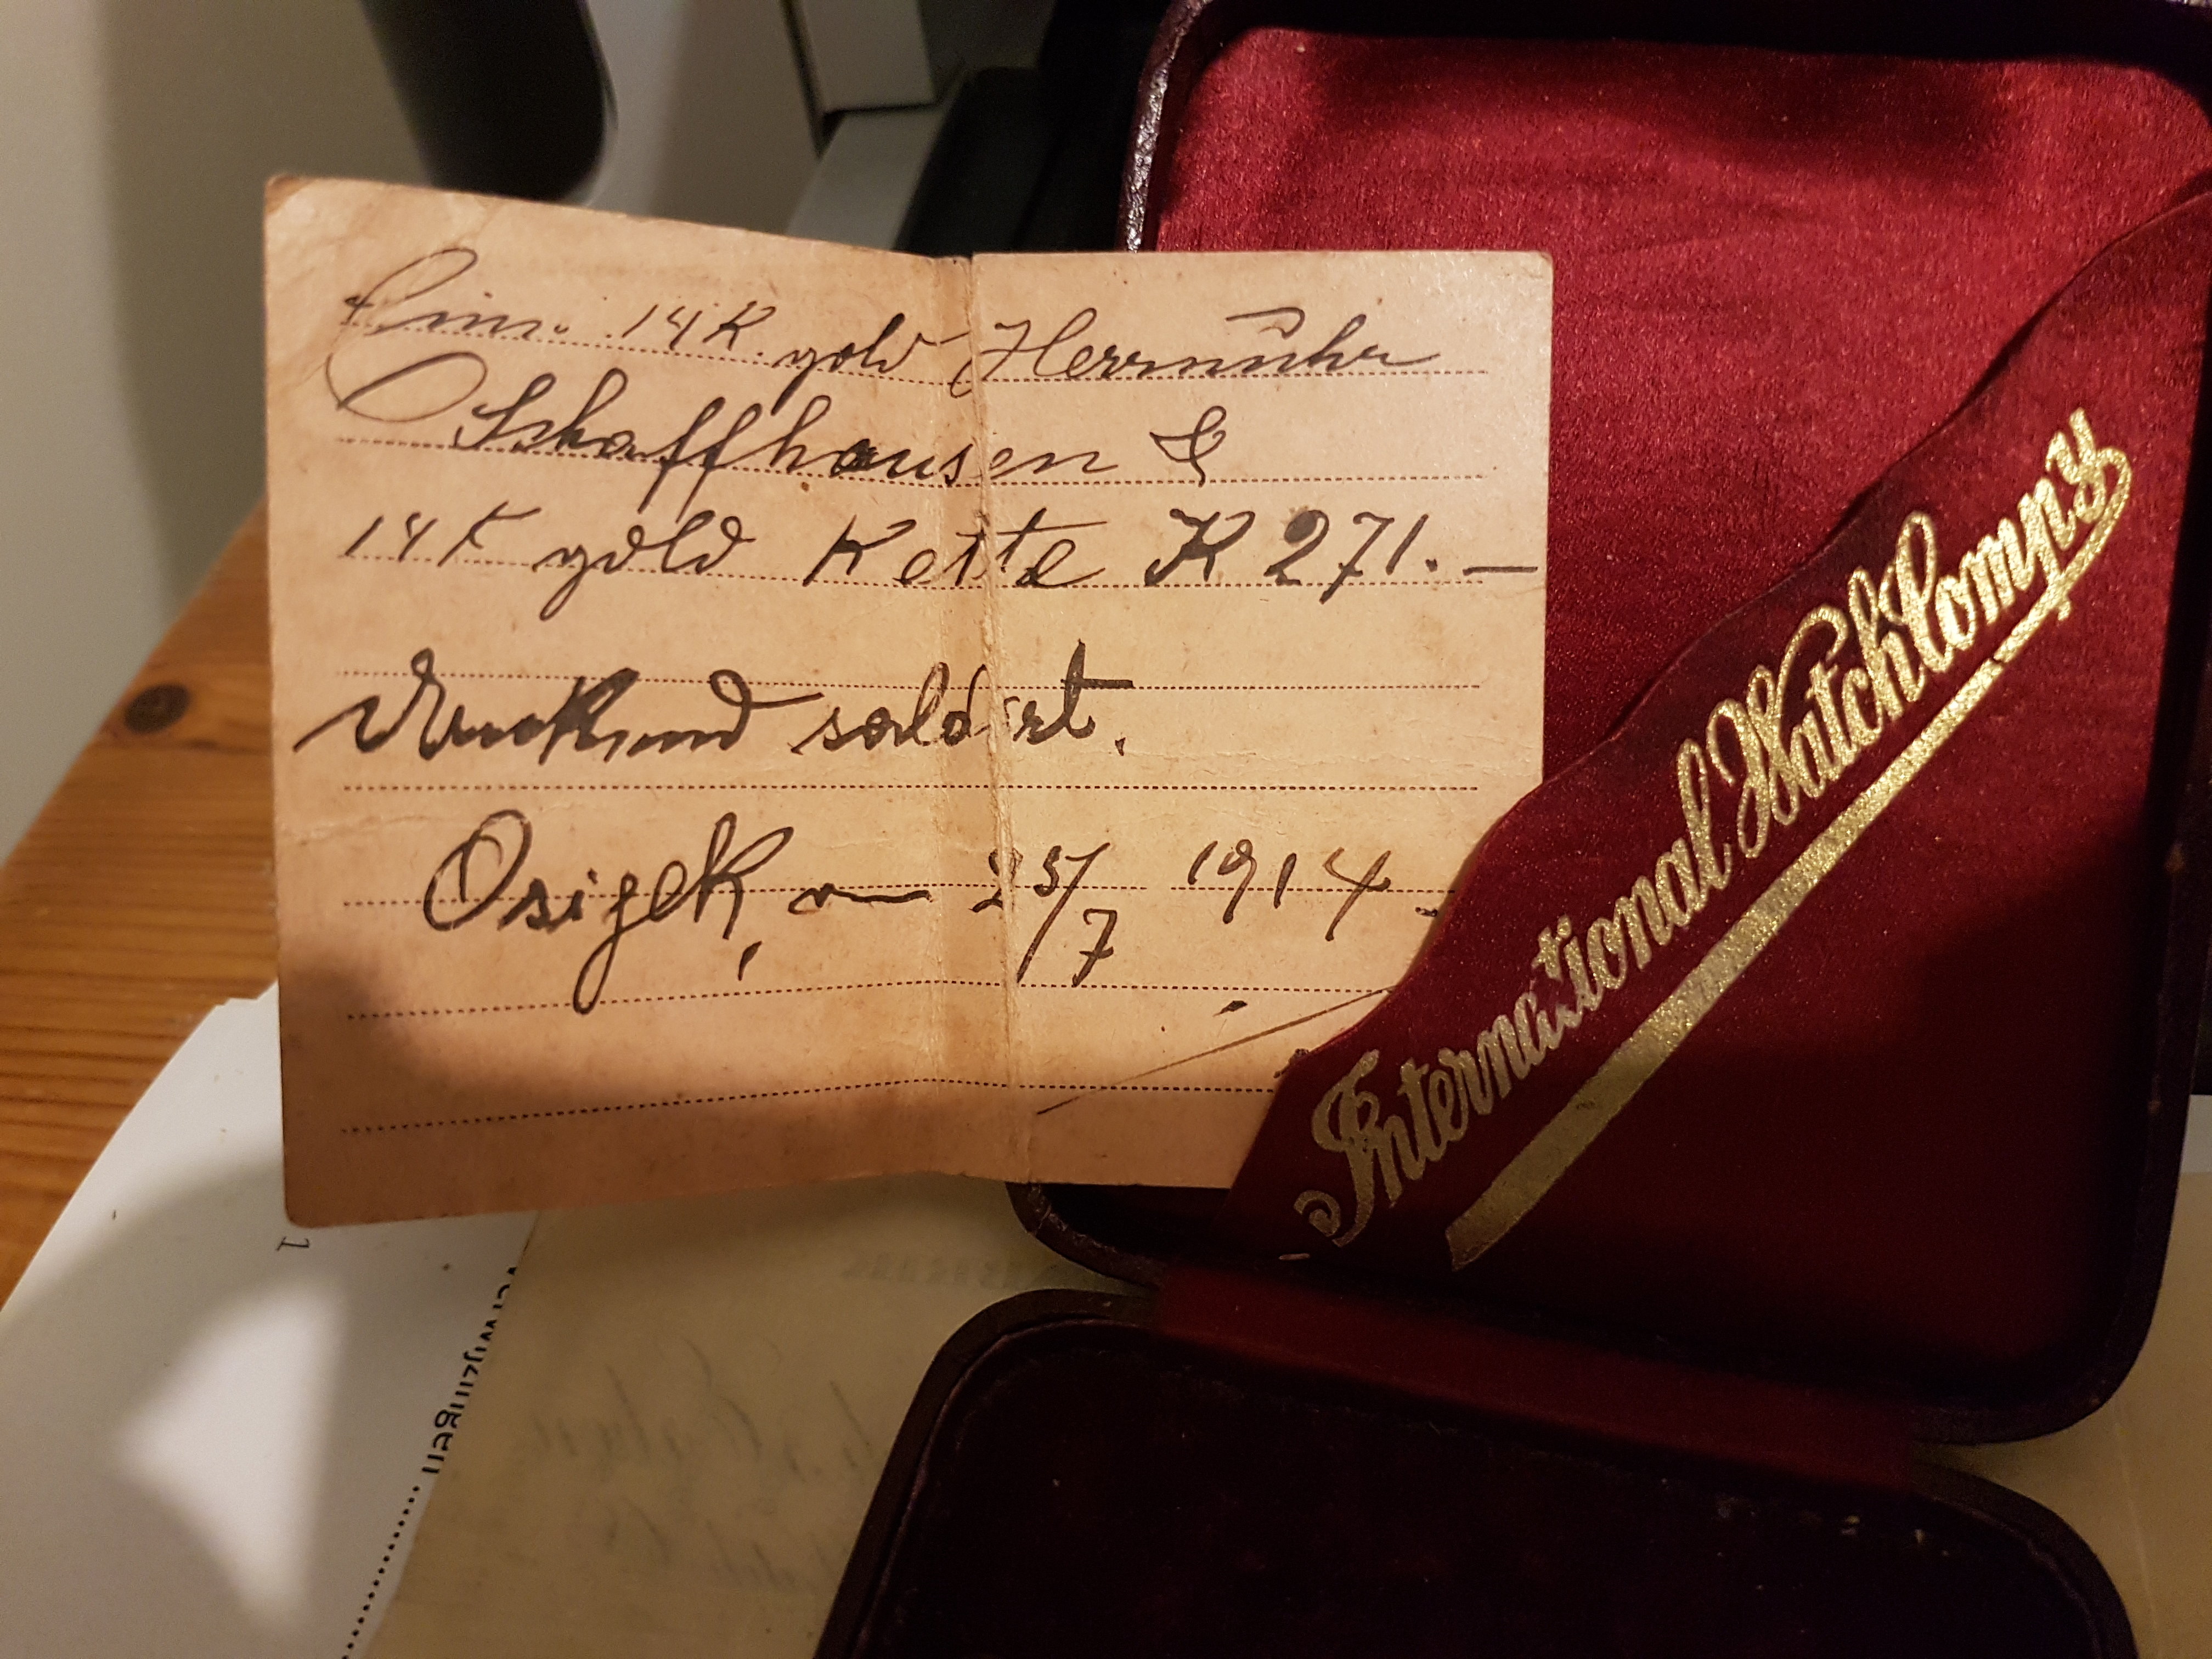 Eine 14K gold Herrnuhr
Schaffhausen &
14K gold Kette K 271.—
dankend saldirt.
Osijek, 25/7 1914.
International Watch Compny
1
verwijzingen